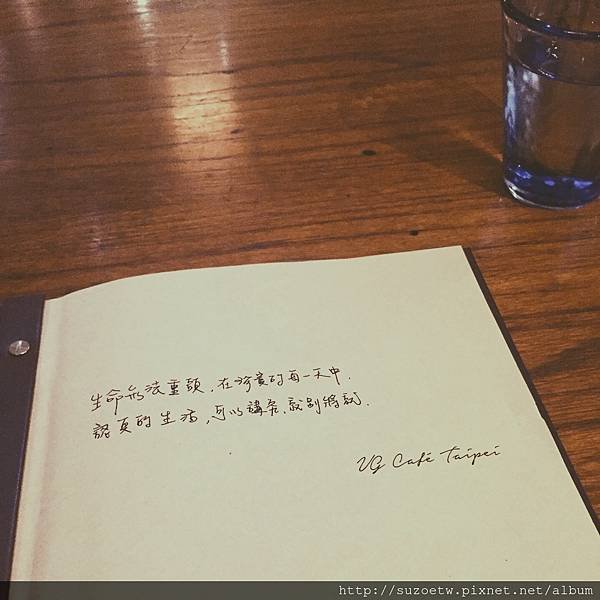 生命無法重頭，在珍貴的每一天中，
認真的生活，可以講究，就別將就．
VG Café Taipei
http://suzoetw.pixnet.net/album